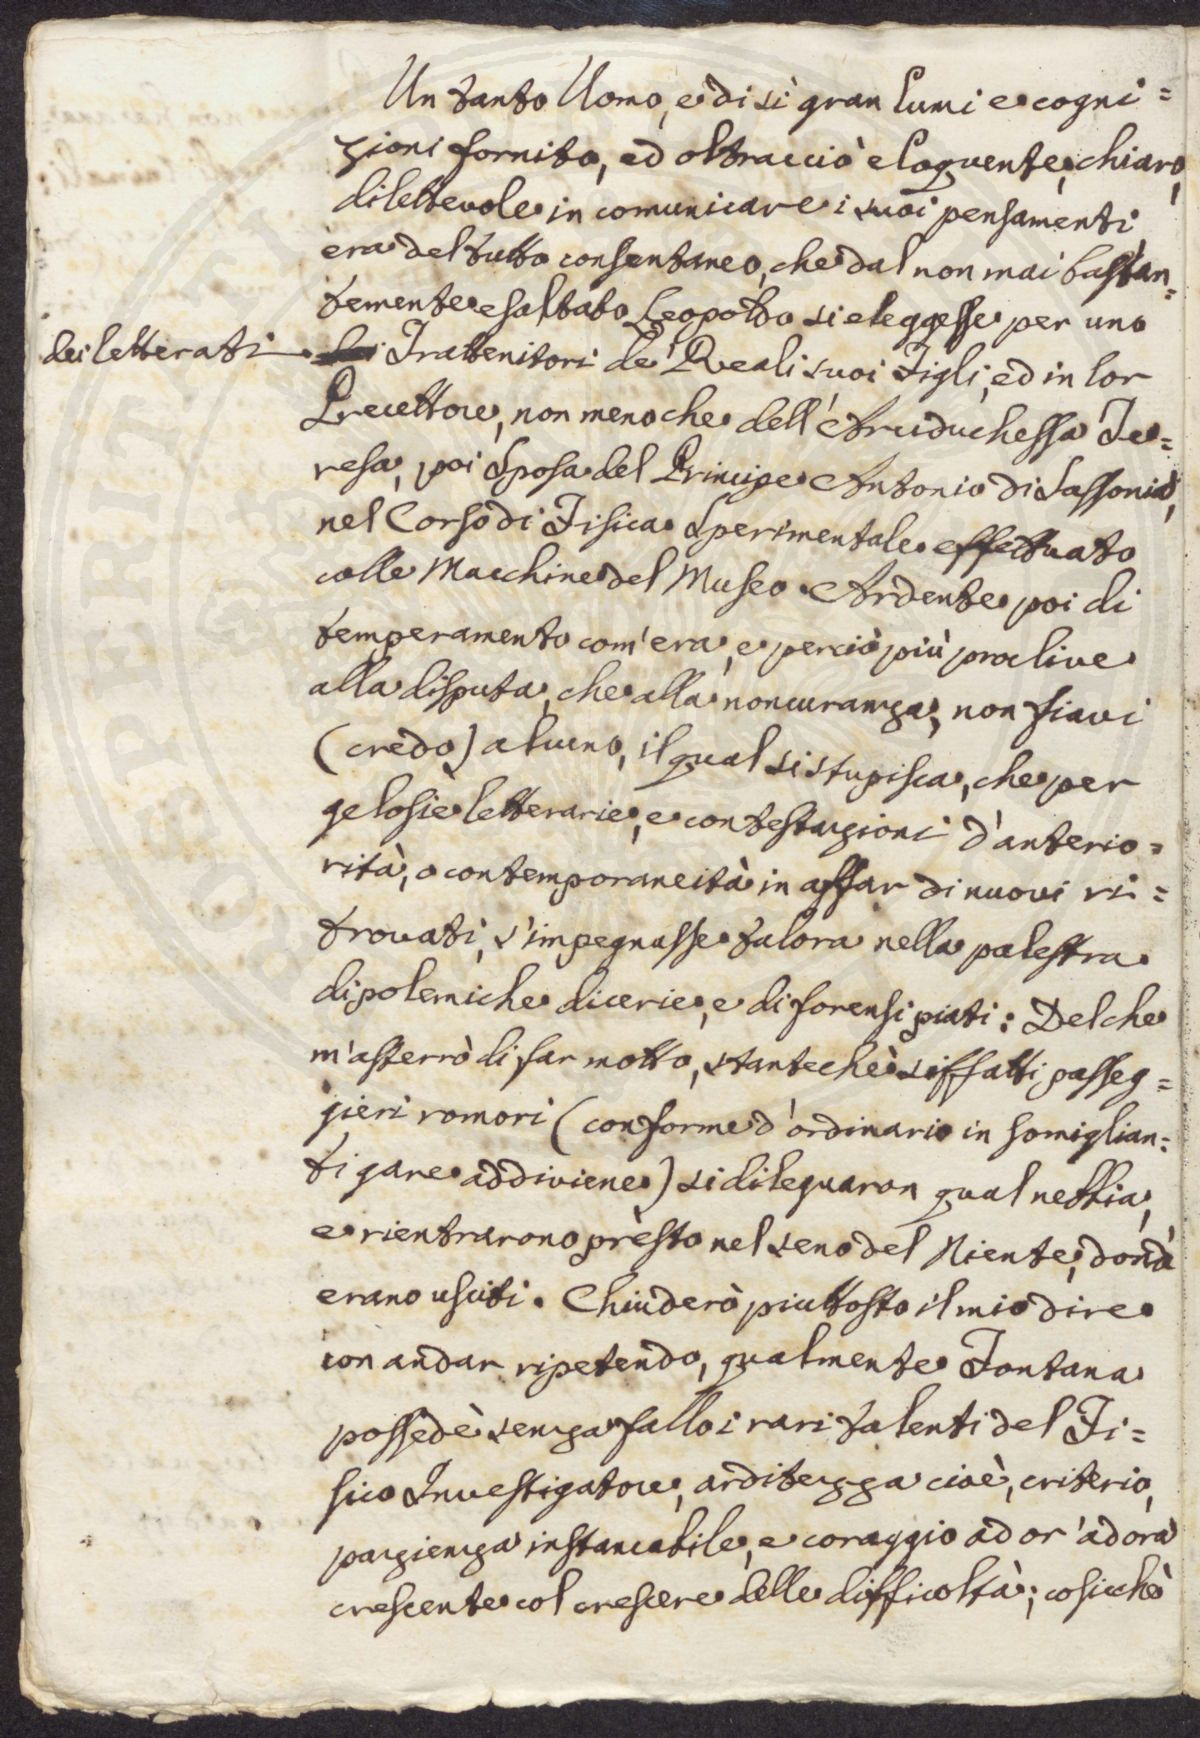 Un tanto Uomo, e di sì gran lumi e cogni=
zioni fornito, ed oltracciò eloquente, chiaro,
dilettevole in comunicare i suoi pensamenti
era del tutto consentaneo, che dal non mai bastan=
temente esaltato Leopoldo si eleggesse per uno
dei letterati Trattenitori de' Reali suoi Figli, ed in lor
Precettore, non meno che dell'Arciduchessa Te=
resa, poi Sposa del Principe Antonio di Sassonia,
nel Corso di Fisica Sperimentale effettuato
colle Macchine del Museo. Ardente poi di
temperamento com'era, e perciò più proclive
alla disputa, che alla noncuranza, non fiavi
(credo) alcuno, il qual si stupisca, che per
gelosie letterarie, e contestazioni d'anterio=
rità, o contemporaneità in affar di nuovi ri=
trovati, s'impegnasse talora nella palestra
di polemiche dicerie, e di forensi piati: Del che
m'asterrò di far motto, stantechè siffatti passeg=
gieri romori (conforme d'ordinario in somiglian=
ti gare addiviene) si dileguaron qual nebbia,
e rientrarono presto nel seno del Niente, dond'
erano usciti. Chiuderò piuttosto il mio dire
con andar ripetendo, qualmente Fontana
possedè senza fallo i rari talenti del Fi=
sico Investigatore, arditezza cioè, criterio,
pazienza instancabile, e coraggio ad or'ad ora
crescente col crescere delle difficoltà; cosicchè